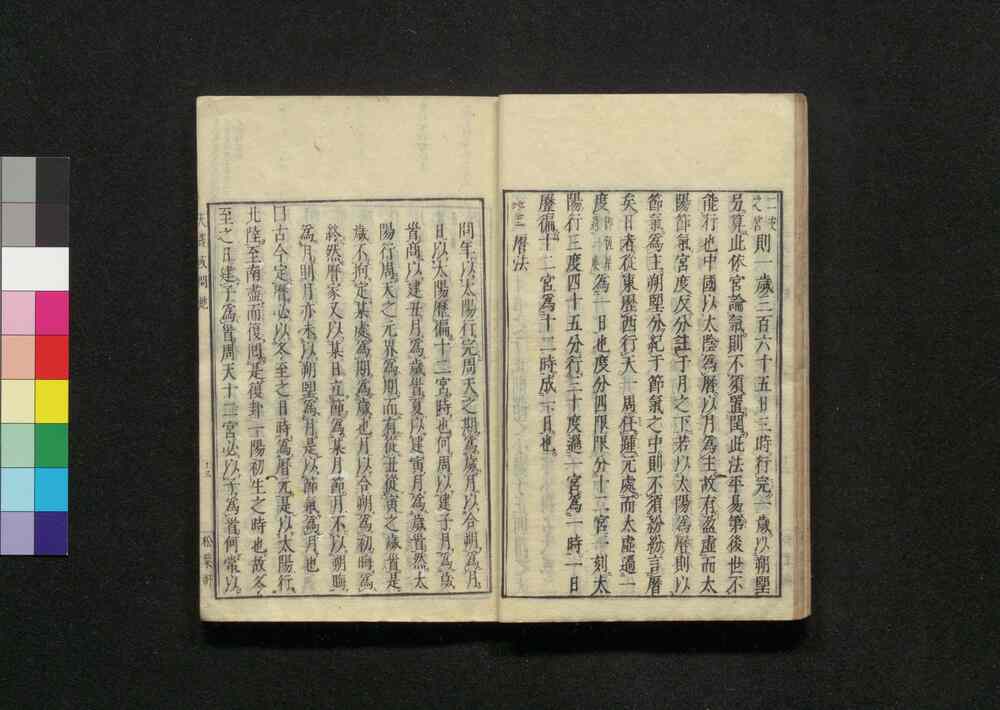 則一歲三百六十五日三時行完一歲以朔望
另算此依官論氣則不須置閏此法平易第後世不
能行也中國以太陰為曆以月為主故有盈虛而太
陽節氣宮度反分註于月之下若以太陽為曆則以
節氣為主朔望分紀于節氣之中則不須紛紛言曆
矣日者從東歷西行天一周仕躔元處而太虛過一
度為一日也度分四限限分十二宮刻太
陽行三度四十五分行三十度過一宮為一時一日
歷徧十二宮為十二時成一日也
曆法
問年以太陽行完周天之期為歲月以合朔為月
日以太陽歷徧十二宮時也何周以建子月為歲
首商以建丑月為歲首夏以建寅月為歲首然太
陽行周天之元界為期而有從丑從寅之歲首是
歲不拘定某處為期為歲也月以合朔為初晦為
終然曆家又以某日立節為某月節月不以朔晦
為月則月亦未以朔望為月是以節氣為月也
曰古今定曆必以冬至之日時為曆元是以太陽行
北陸至南盡而復間是復卦一陽初生之時也故冬
至之月建子為首周天十二宮必以子為首何常以
天
或問
十三
松葉軒